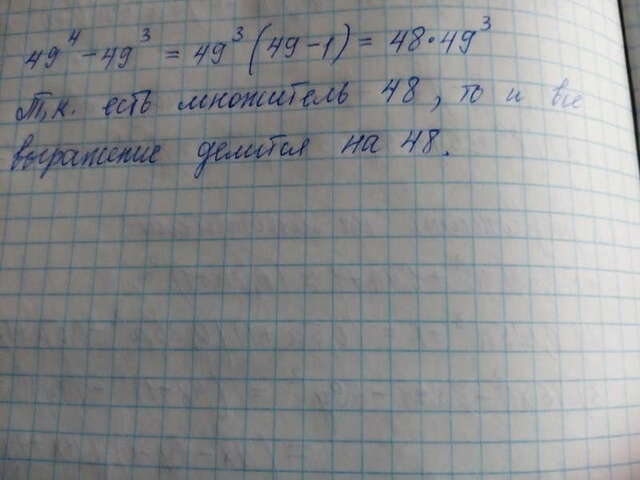 49⁴ - 49³ = 49³(49-1) = 48·49³
Т.к. есть множитель 48, то и все
выражение делится на 48.